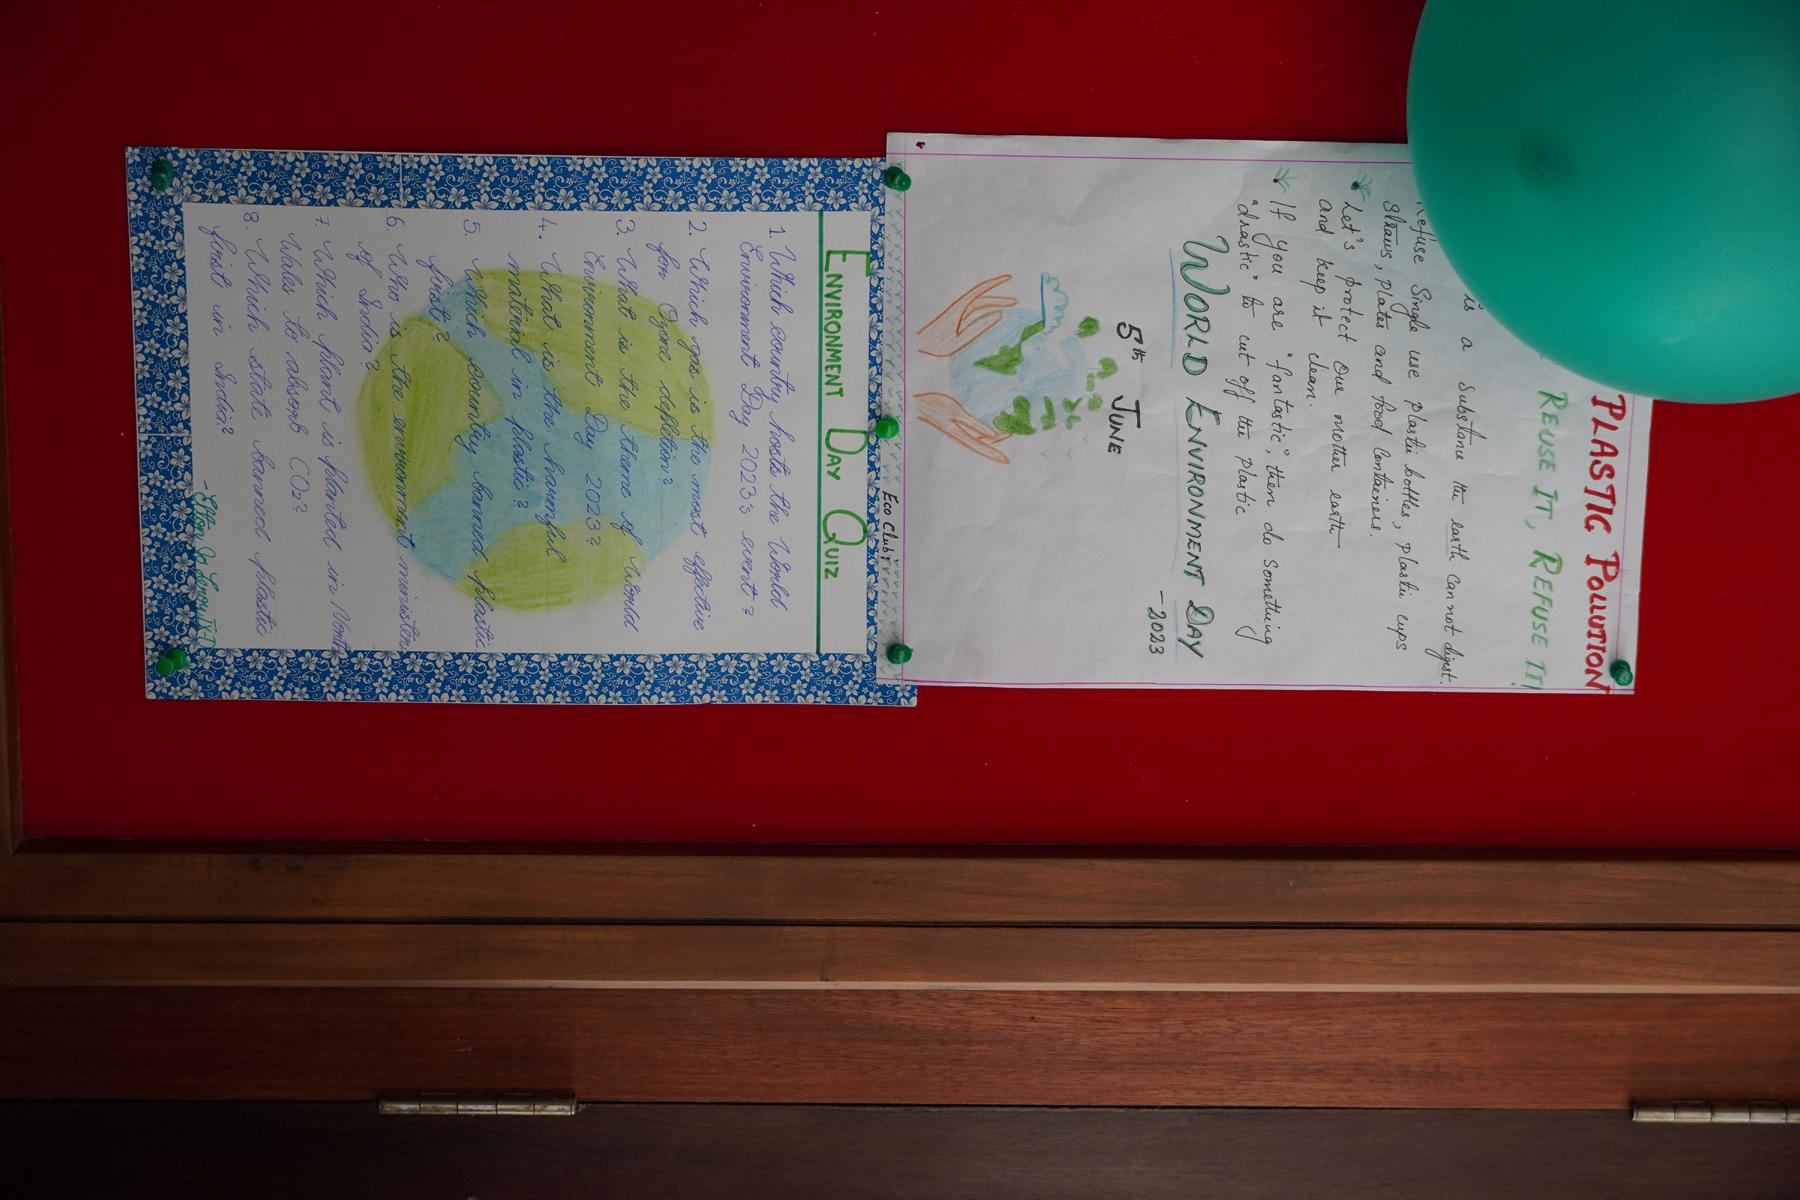 PLASTIC POLLUTION
REUSE IT, REFUSE IT!
is a Substance the earth cannot digest.
Refuse Single use plastic bottles, plastic cups
Straws, plates and food Containers.
Let's protect our mother earth
and keep it clean.
If you are "fantastic", then do something
"drastic" to cut off the plastic
WORLD ENVIRONMENT DAY
-2023
5th JUNE
Eco Club
ENVIRONMENT DAY QUIZ
1. Which country hosts the World
Environment Day 2023's event?
2. Which gas is the most effective
for Ozone depletion?
3. What is the theme of World
Environment Day 2023?
4. What is the harmful
material in plastic?
5. Which country banned plastic
first?
6. Who is the environment minister
of India?
7. Which plant is planted in North
Wales to absorb CO2?
8. Which state banned plastic
first in India?